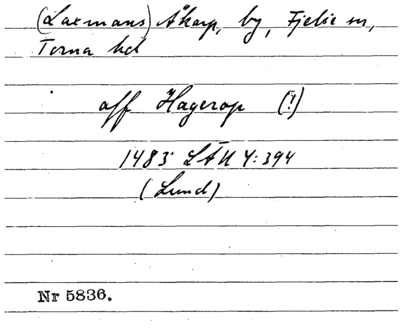 (Laxmans) Åkarp, by, Fjelie sn,
Torna hd
off Hagerop (!)
1483 LÄU 4:394
(Lund)
Nr 5836.